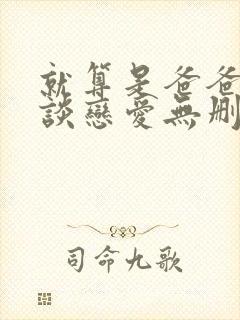 就算是爸爸
談戀愛無刪
司命九歌